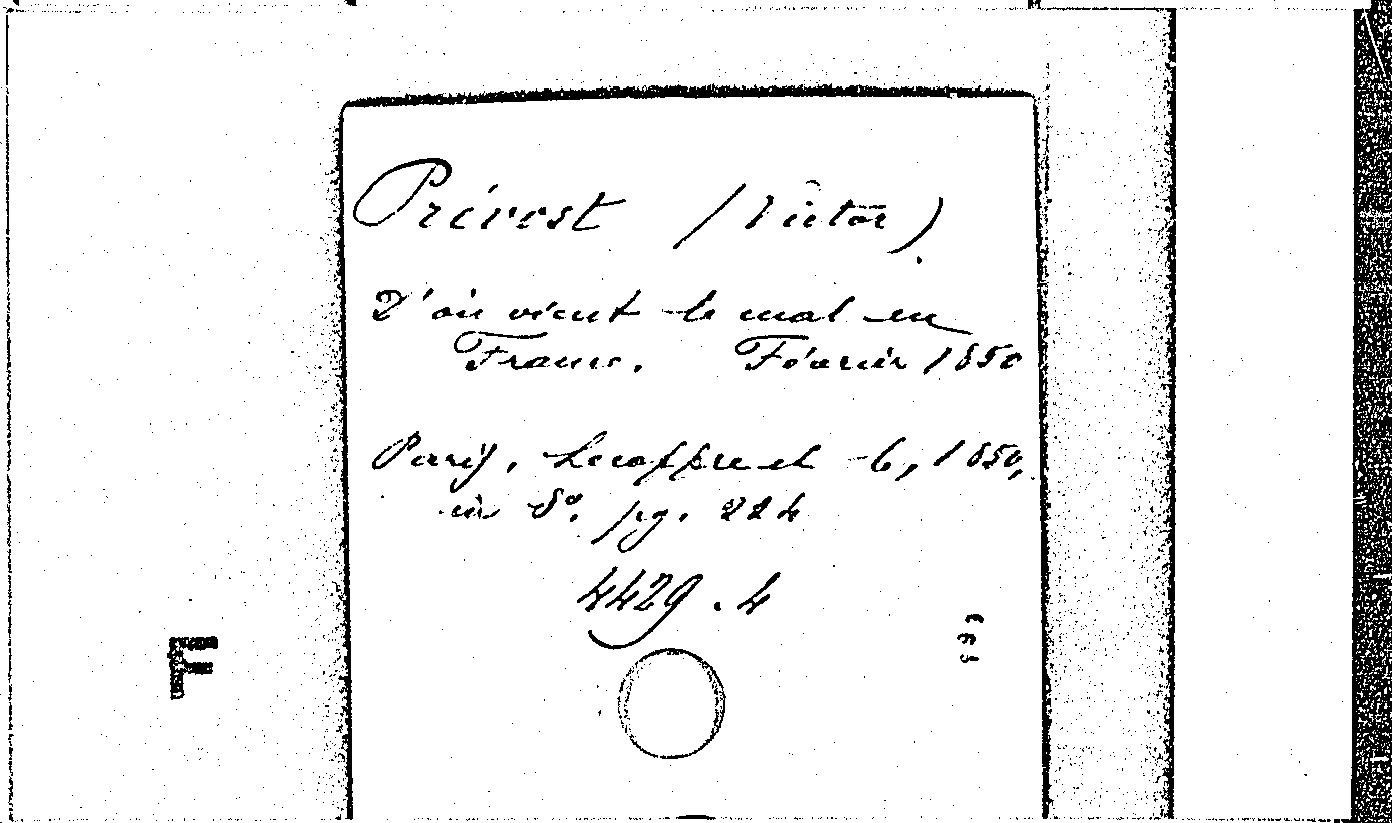 Prévost (Victor).
D'où vient le mal en
France. Février 1850
Paris, Lecoffre et C, 1850,
in 8º. pg. 224
4429.4
F